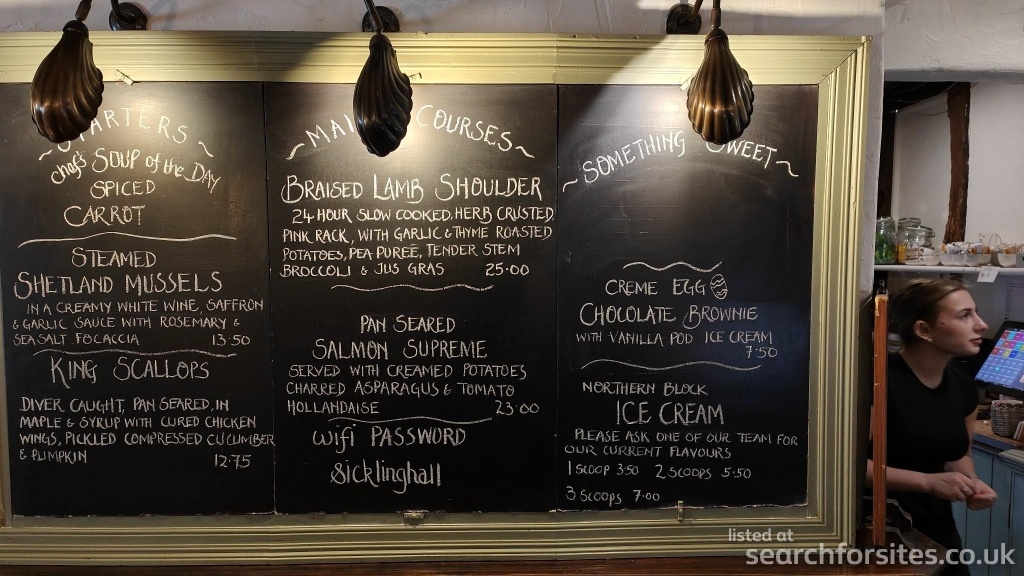 ~STARTERS~
chef's SOUP of the DAY
SPICED
CARROT
STEAMED
SHETLAND MUSSELS
IN A CREAMY WHITE WINE, SAFFRON
& GARLIC SAUCE WITH ROSEMARY &
SEA SALT FOCACCIA 13.50
KING SCALLOPS
DIVER CAUGHT, PAN SEARED, IN
MAPLE & SYRUP WITH CURED CHICKEN
WINGS, PICKLED COMPRESSED CUCUMBER
& PUMPKIN 12.75
~MAIN COURSES~
BRAISED LAMB SHOULDER
24 HOUR SLOW COOKED, HERB CRUSTED
PINK RACK, WITH GARLIC & THYME ROASTED
POTATOES, PEA PUREE, TENDER STEM
BROCCOLI & JUS GRAS 25.00
PAN SEARED
SALMON SUPREME
SERVED WITH CREAMED POTATOES
CHARRED ASPARAGUS & TOMATO
HOLLANDAISE 23.00
wifi PASSWORD
Sicklinghall
~SOMETHING SWEET~
CREME EGG
CHOCOLATE BROWNIE
WITH VANILLA POD ICE CREAM
7.50
NORTHERN BLOCK
ICE CREAM
PLEASE ASK ONE OF OUR TEAM FOR
OUR CURRENT FLAVOURS
1 SCOOP 3.50 2 SCOOPS 5.50
3 SCOOPS 7.00
listed at
searchforsites.co.uk